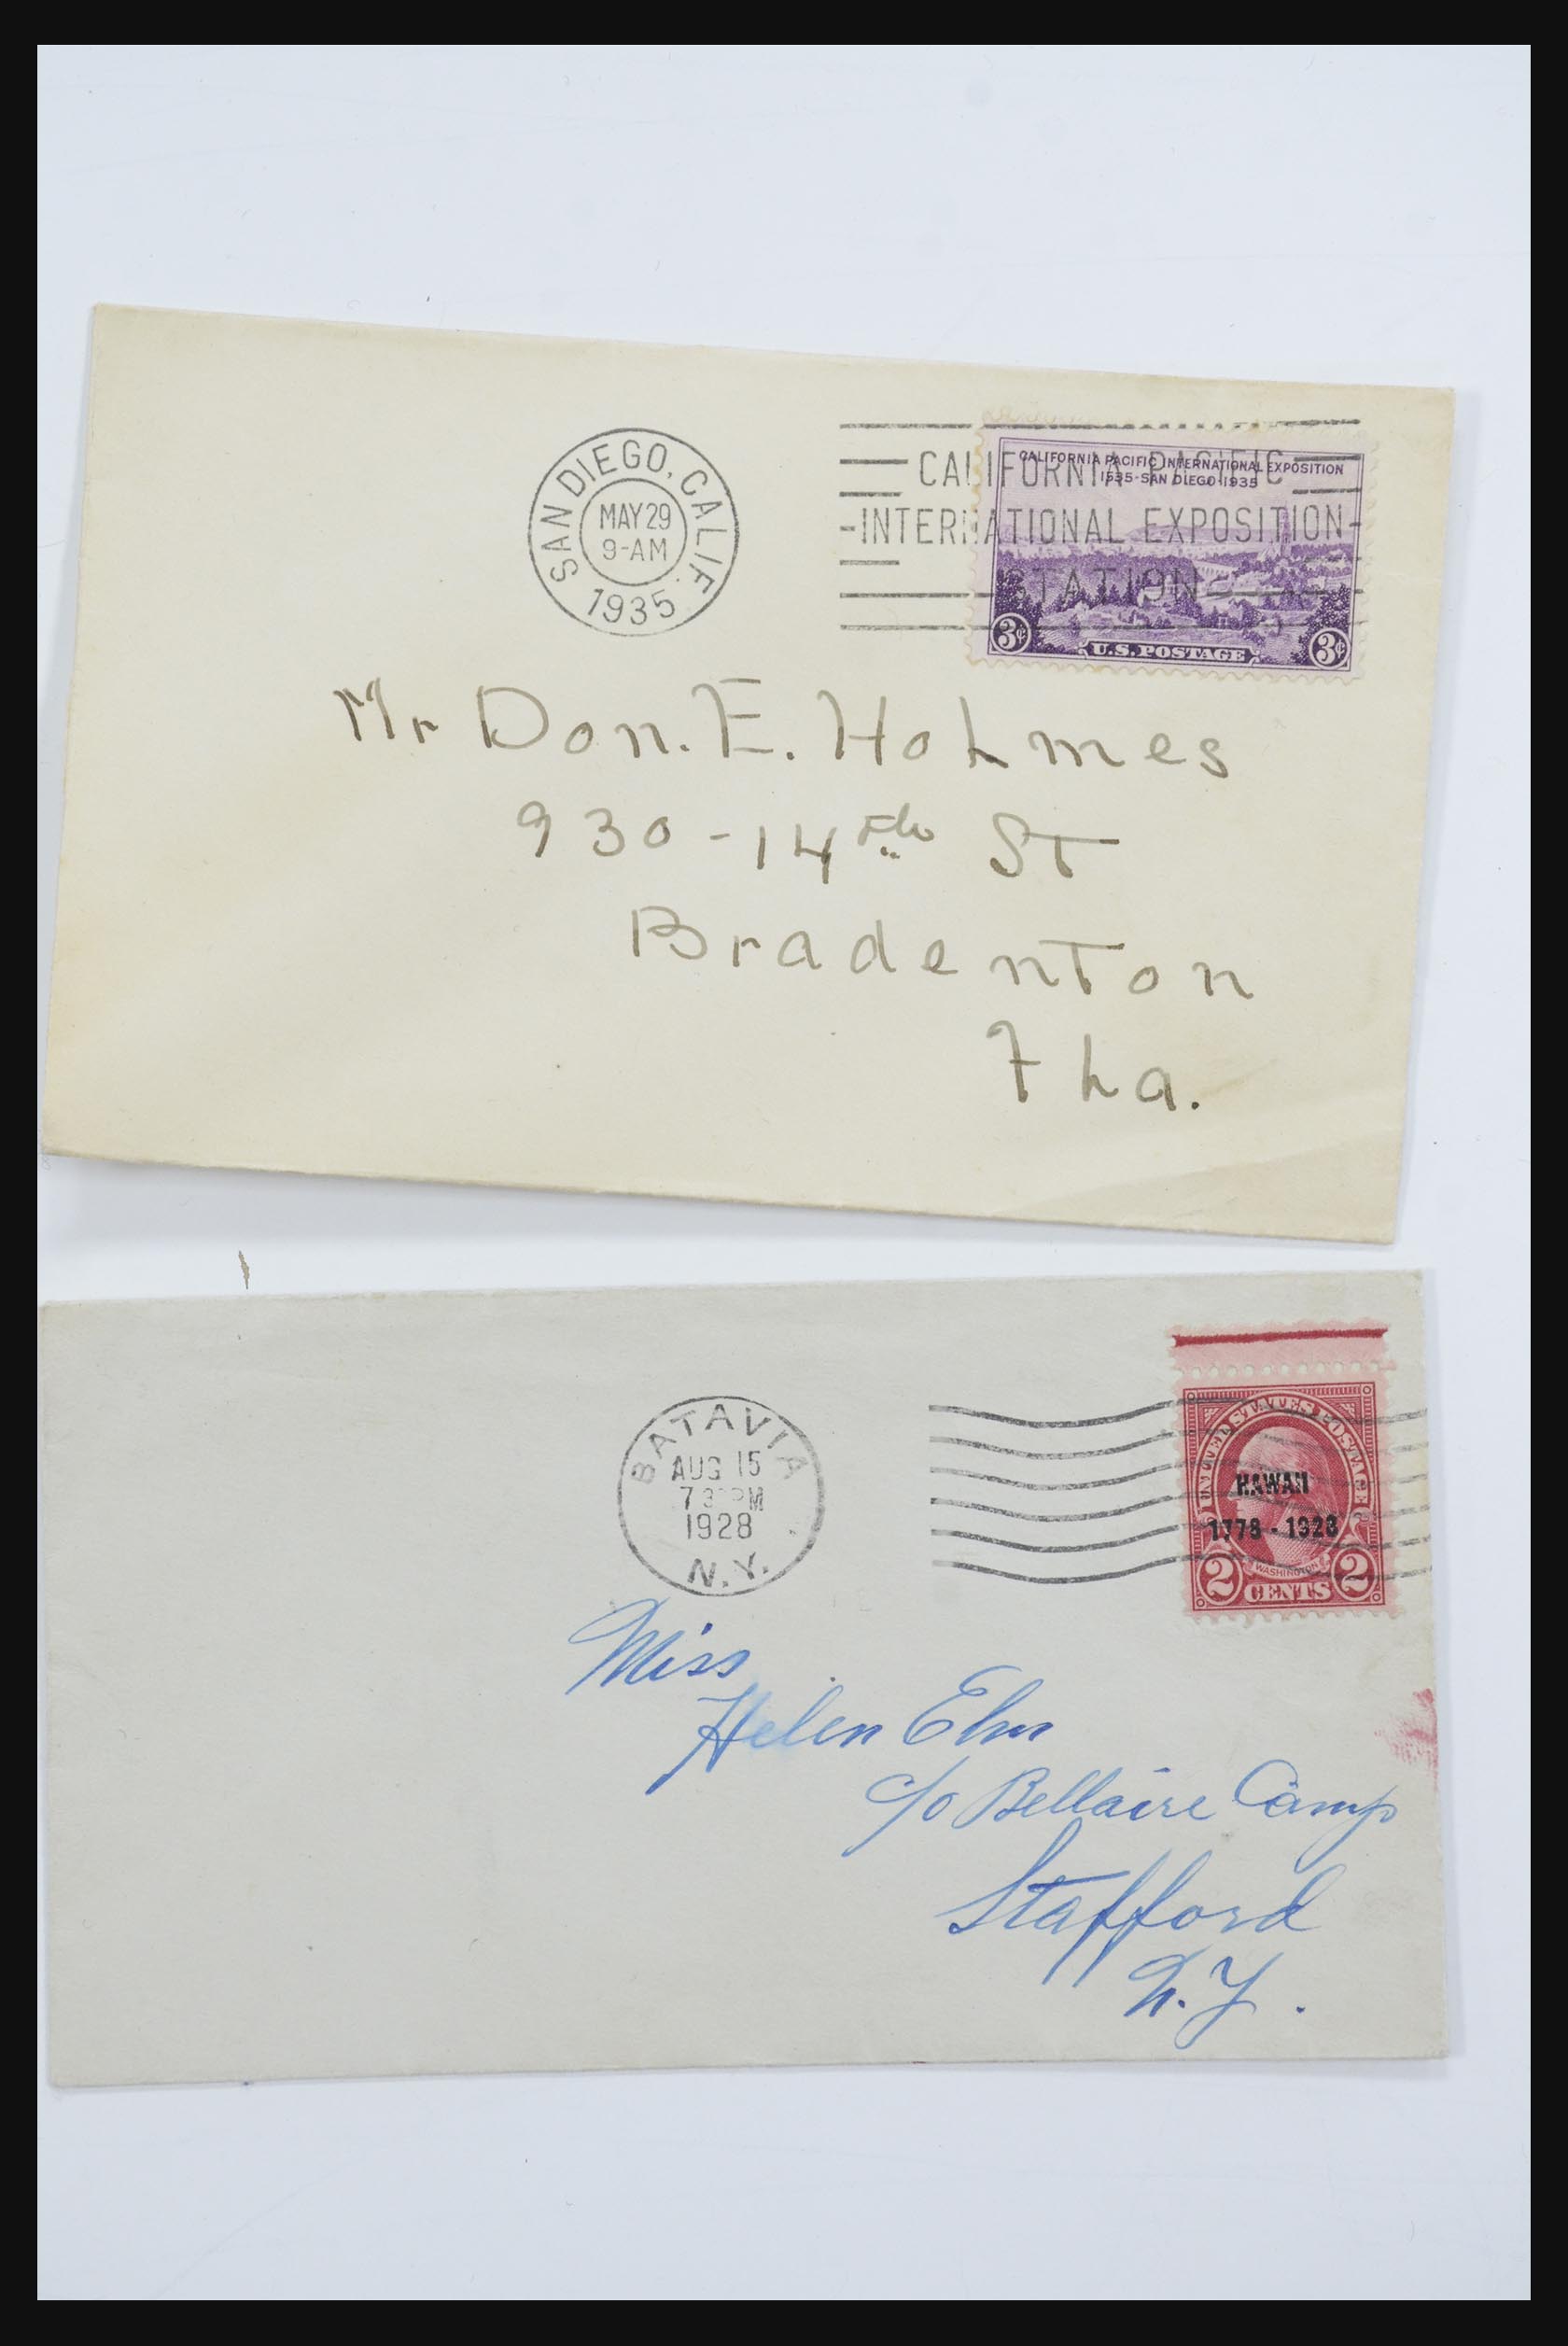 SAN DIEGO, CALIF.
MAY 29
9-AM
1935
CALIFORNIA PACIFIC
INTERNATIONAL EXPOSITION
STATION
CALIFORNIA PACIFIC INTERNATIONAL EXPOSITION
1535-SAN DIEGO-1935
3¢ U.S. POSTAGE 3¢
Mr Don. E. Holmes
930-14th ST
Bradenton
Fla.
BATAVIA
AUG 15
7 PM
1928
N.Y.
UNITED STATES POSTAGE
HAWAII
1778 - 1928
WASHINGTON
2 CENTS 2
Miss
Helen Elm
c/o Bellaire Camp
Stafford
N.Y.